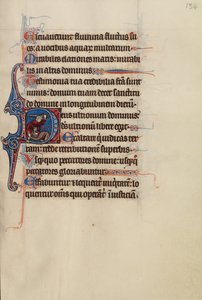 134
Eleuauerunt flumina fluctus su
os: a uocibus aquarum multarum
Mirabiles elationes maris: mirabi
lis in altis dominus
Testimonia tua credibilia facta sunt
nimis: domum tuam decet sanctitu
do domine in longitudinem dierum
Deus ultionum dominus:
deus ultionum libere egit
Exaltare qui iudicas ter
ram: redde retributionem superbis
Usq; quo peccatores domine: usq; quo
peccatores gloriabuntur
Effabuntur et loquentur iniquitatem: lo
quentur omnes qui operantur iniusticiam